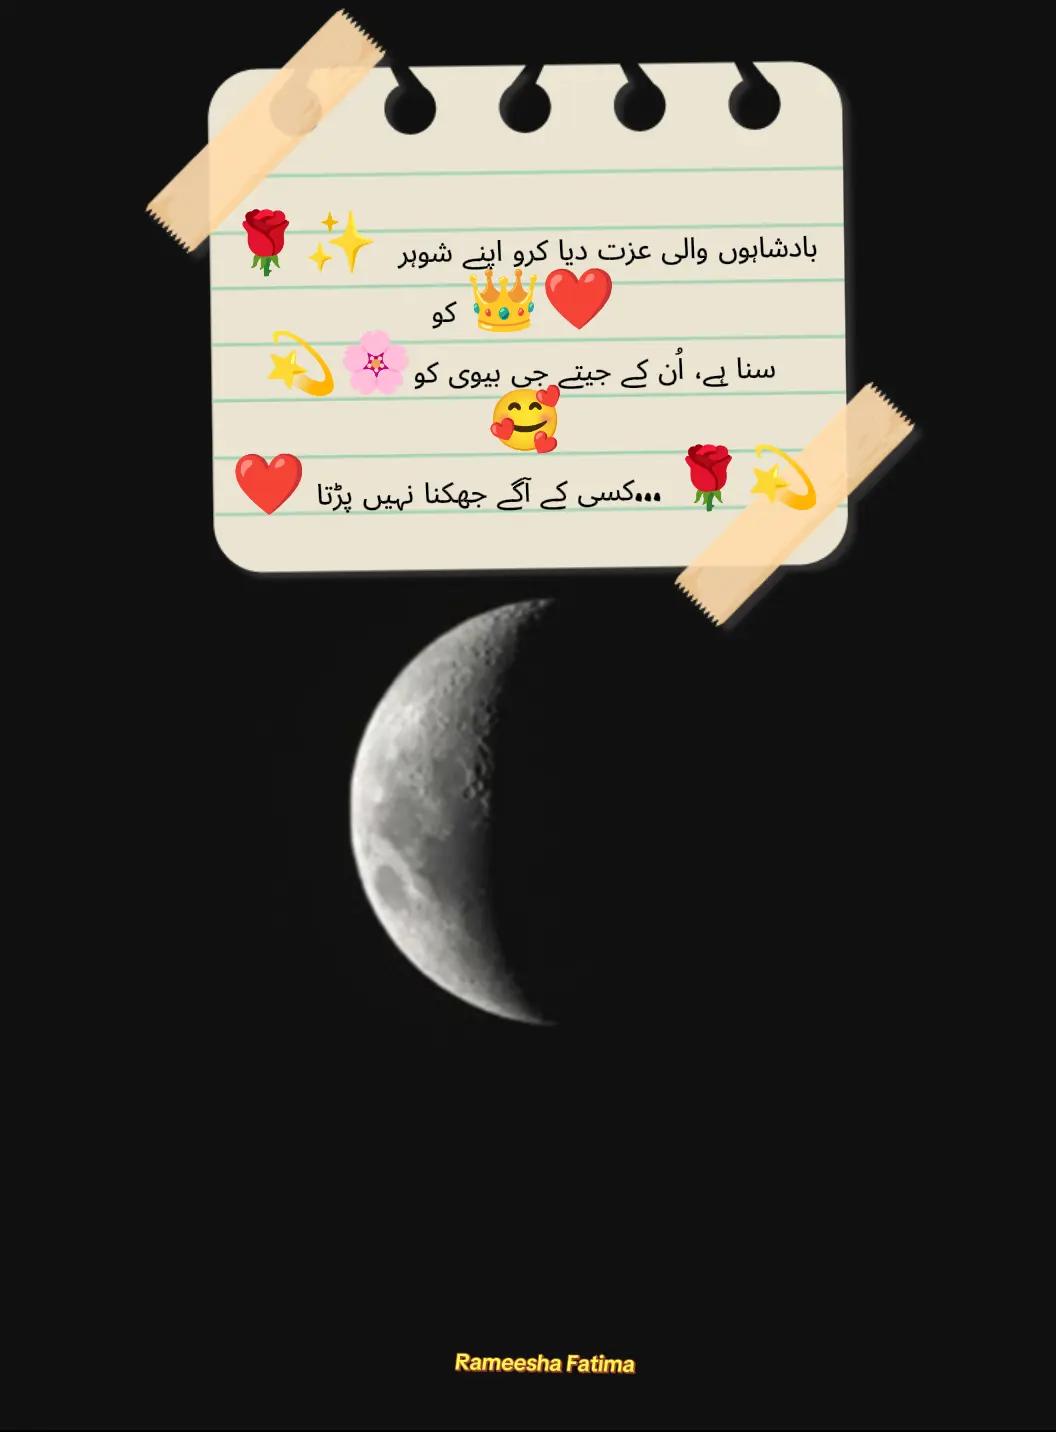 بادشاہوں والی عزت دیا کرو اپنے شوہر ✨🌹
کو 👑❤️
سنا ہے، اُن کے جیتے جی بیوی کو🌸💫
🥰
💫🌹 ...کسی کے آگے جھکنا نہیں پڑتا ❤️
Rameesha Fatima